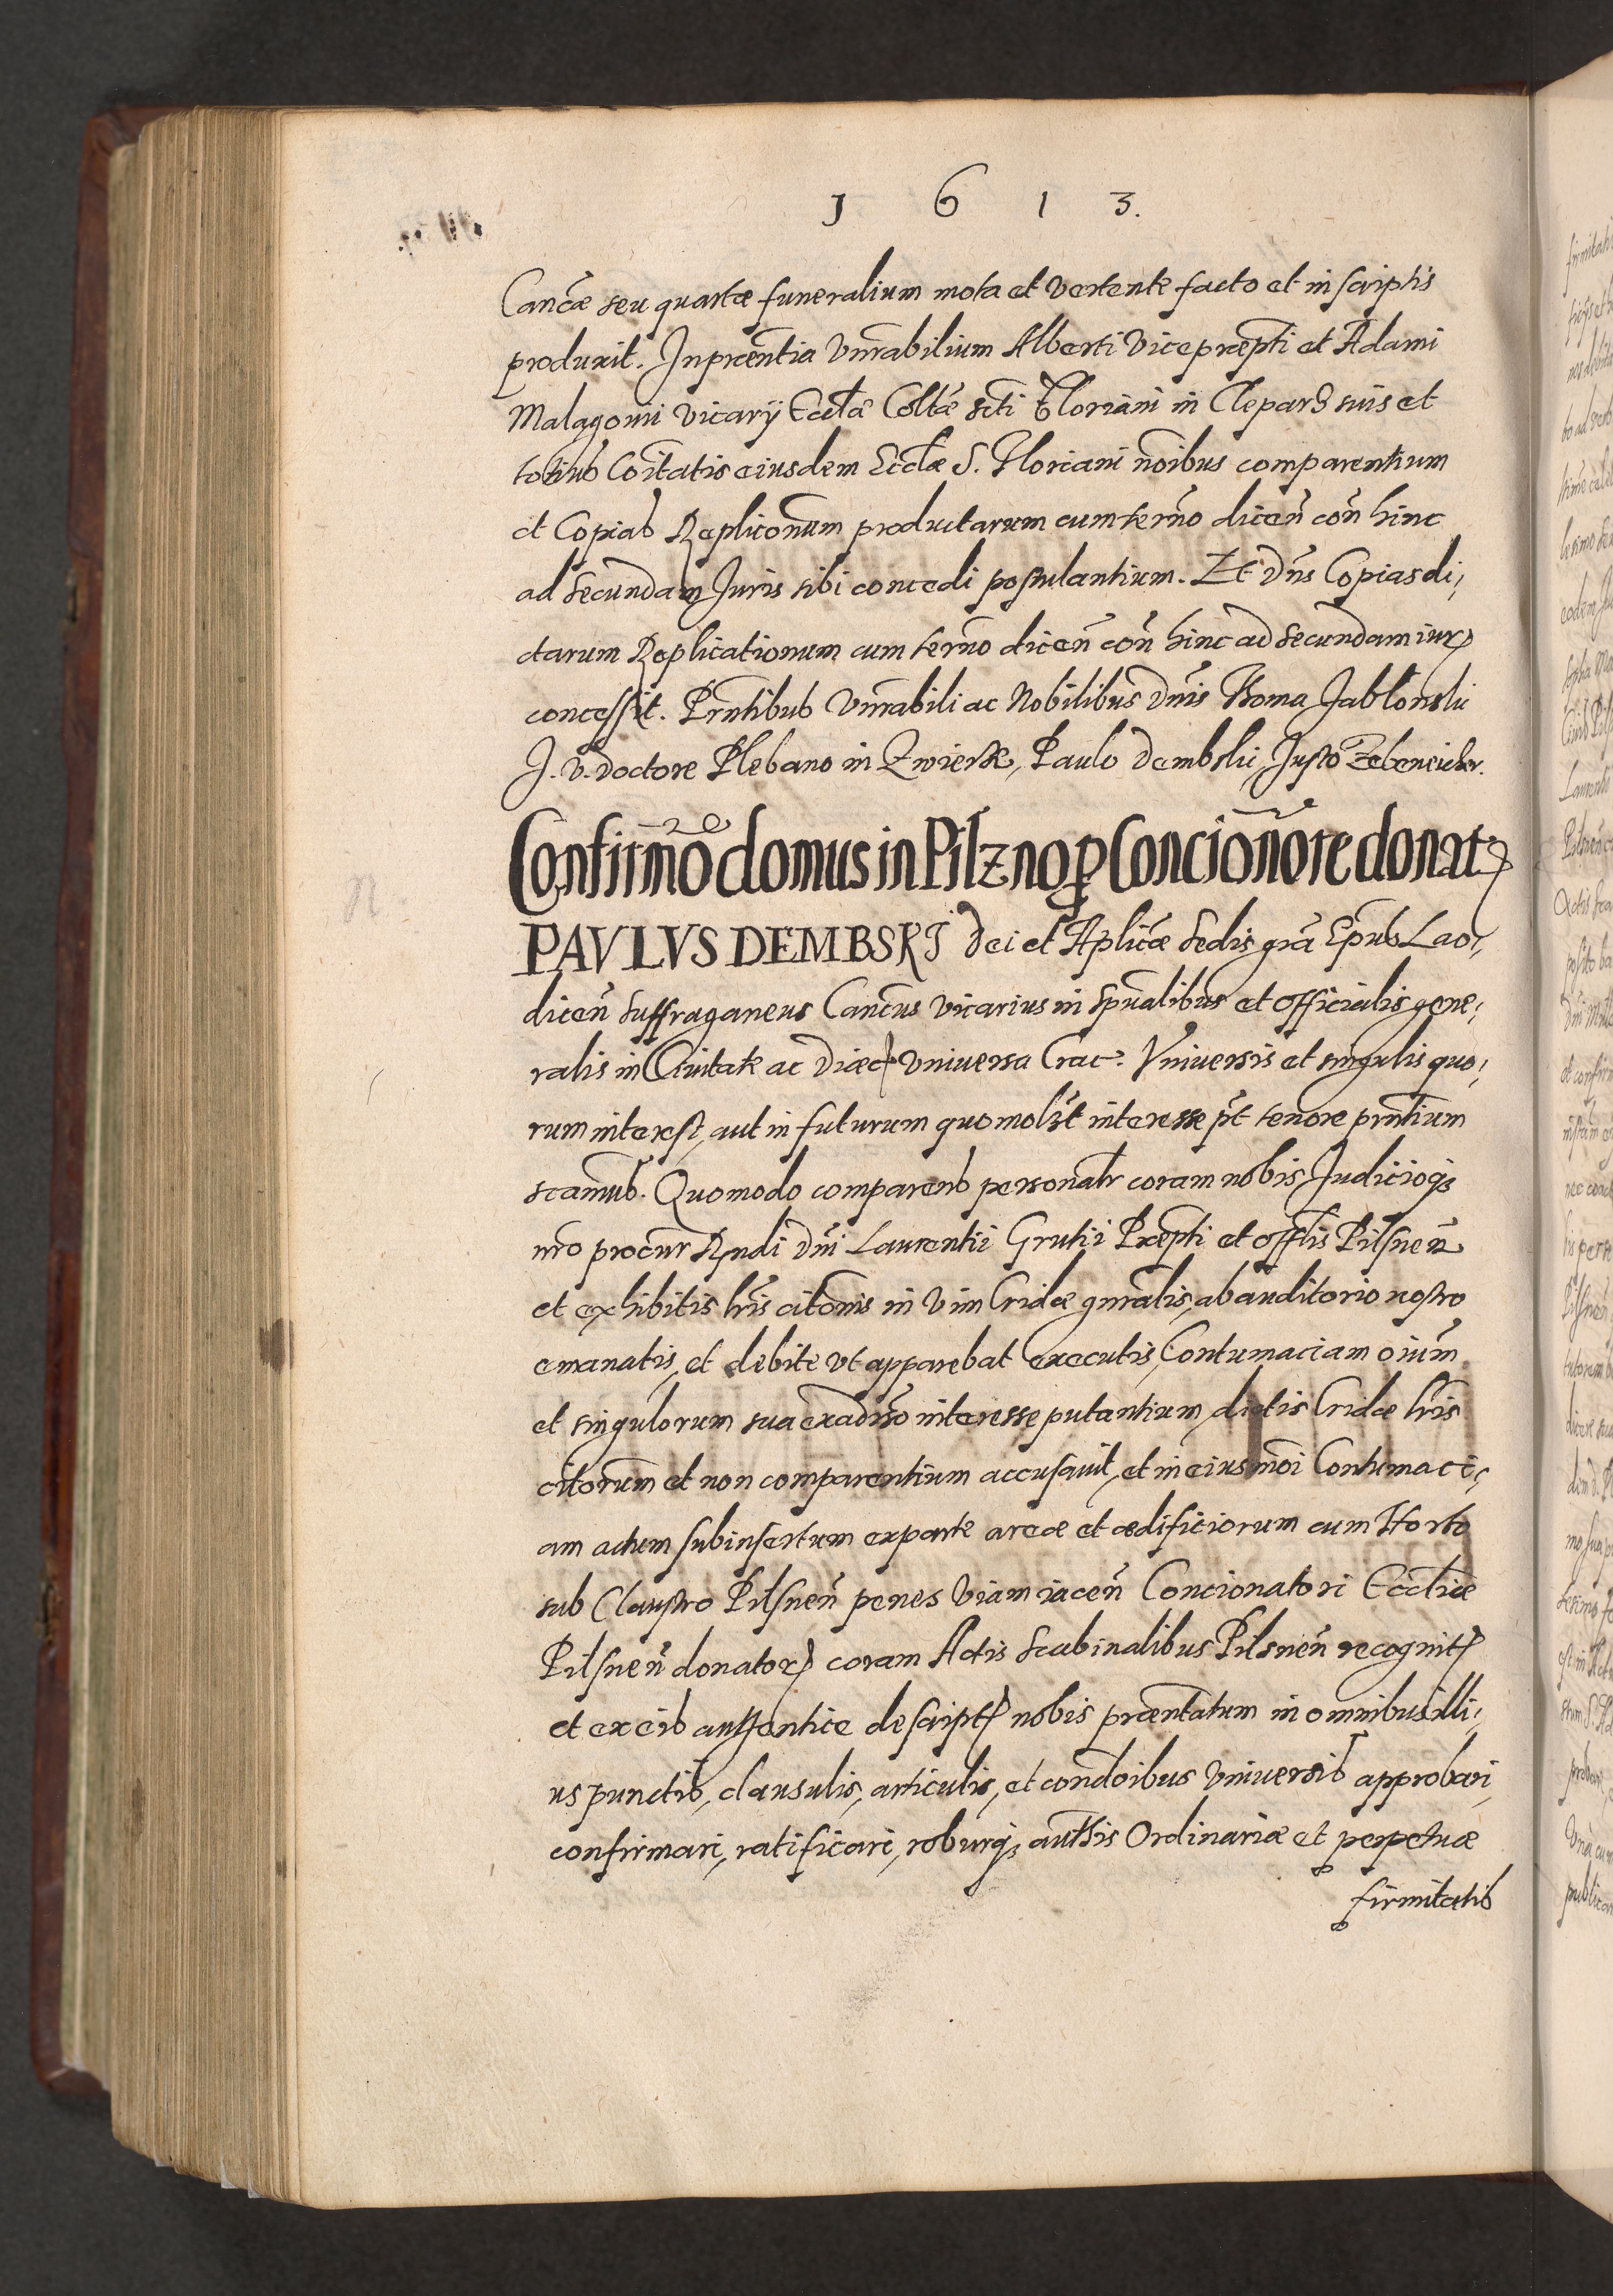 1 6 1 3.
Canćæ seu quartæ funeralium mota et vertente facto et in scriptis
produxit. In præntia Vnrabilium Alberti Viceprepti et Adami
Malagowi Vicarij Eccłæ Colłæ scti Floriani in Clepar: suis et
totius Coitatis eiusdem Eccłæ S. Floriani noibus comparentium
et Copias Repliconum productarum cum termo dicen̄ con̄ hinc
ad secundam Juris sibi concedi postulantium. Et Dn̄s Copias di,
ctarum Replicationum cum termo dicen̄ con̄ hinc ad secundam iur,
concessit. Prntibus Vnrabili ac Nobilibus Dn̄is Thoma Jabłonski
J. V. doctore Plebano in Zwierz, Paulo Dembski, Justo Zebeneicher.
Confirmo domus in Pilzno p Concionore donat
PAVLVS DEMBSKI Dei et Aplicæ Sedis grā Epūs Lao,
dicen̄ Suffraganeus Cancus Vicarius in Spualibus et Officialis gene,
ralis in Civitate ac Diæc Vniversa Crac. Vniversis et singulis quo,
rum interest, aut in futurum quomolzt interesse pt tenore prntium
scamus. Quomodo comparens personalr coram nobis, Judicioq;
nro procur Rndi Dn̄i Laurentii Grutii Præpti et offlis Pilsnen̄
et exhibitis lris citonis in vim Cridæ gnralis, ab auditorio nostro
emanatis, et debite vt apparebat executis, Contumaciam oium
et singulorum sua exadiso interesse putantium dictis Cridæ lris
citorum et non comparentium accusavit, et in eiusmoi Contumaci,
am actum subinsertum ex parte areæ et ædificiorum cum Horto
sub Claustro Pilsnen̄ penes Viam iacen̄ Concionatori Ecclicæ
Pilsnen̄ donator, coram Actis Scabinalibus Pilsnen̄ recognit
et ex eis authentice descript nobis præntatum in omnibus illi,
us punctis, clausulis, articulis, et condoibus Vniversis approbari,
confirmari, ratificari, roburq; authis Ordinariæ et perpetuæ
firmitatis